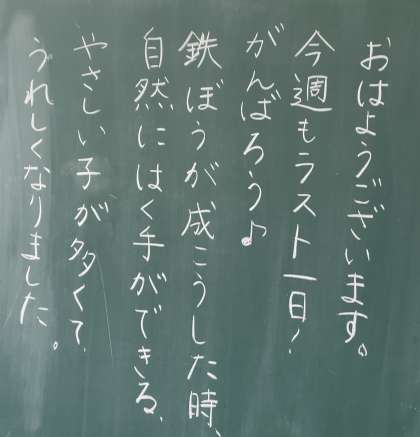 おはようございます。
今週もラスト一日!
がんばろう♪
鉄ぼうが成こうした時、
自然にはく手ができる、
やさしい子が多くて、
うれしくなりました。